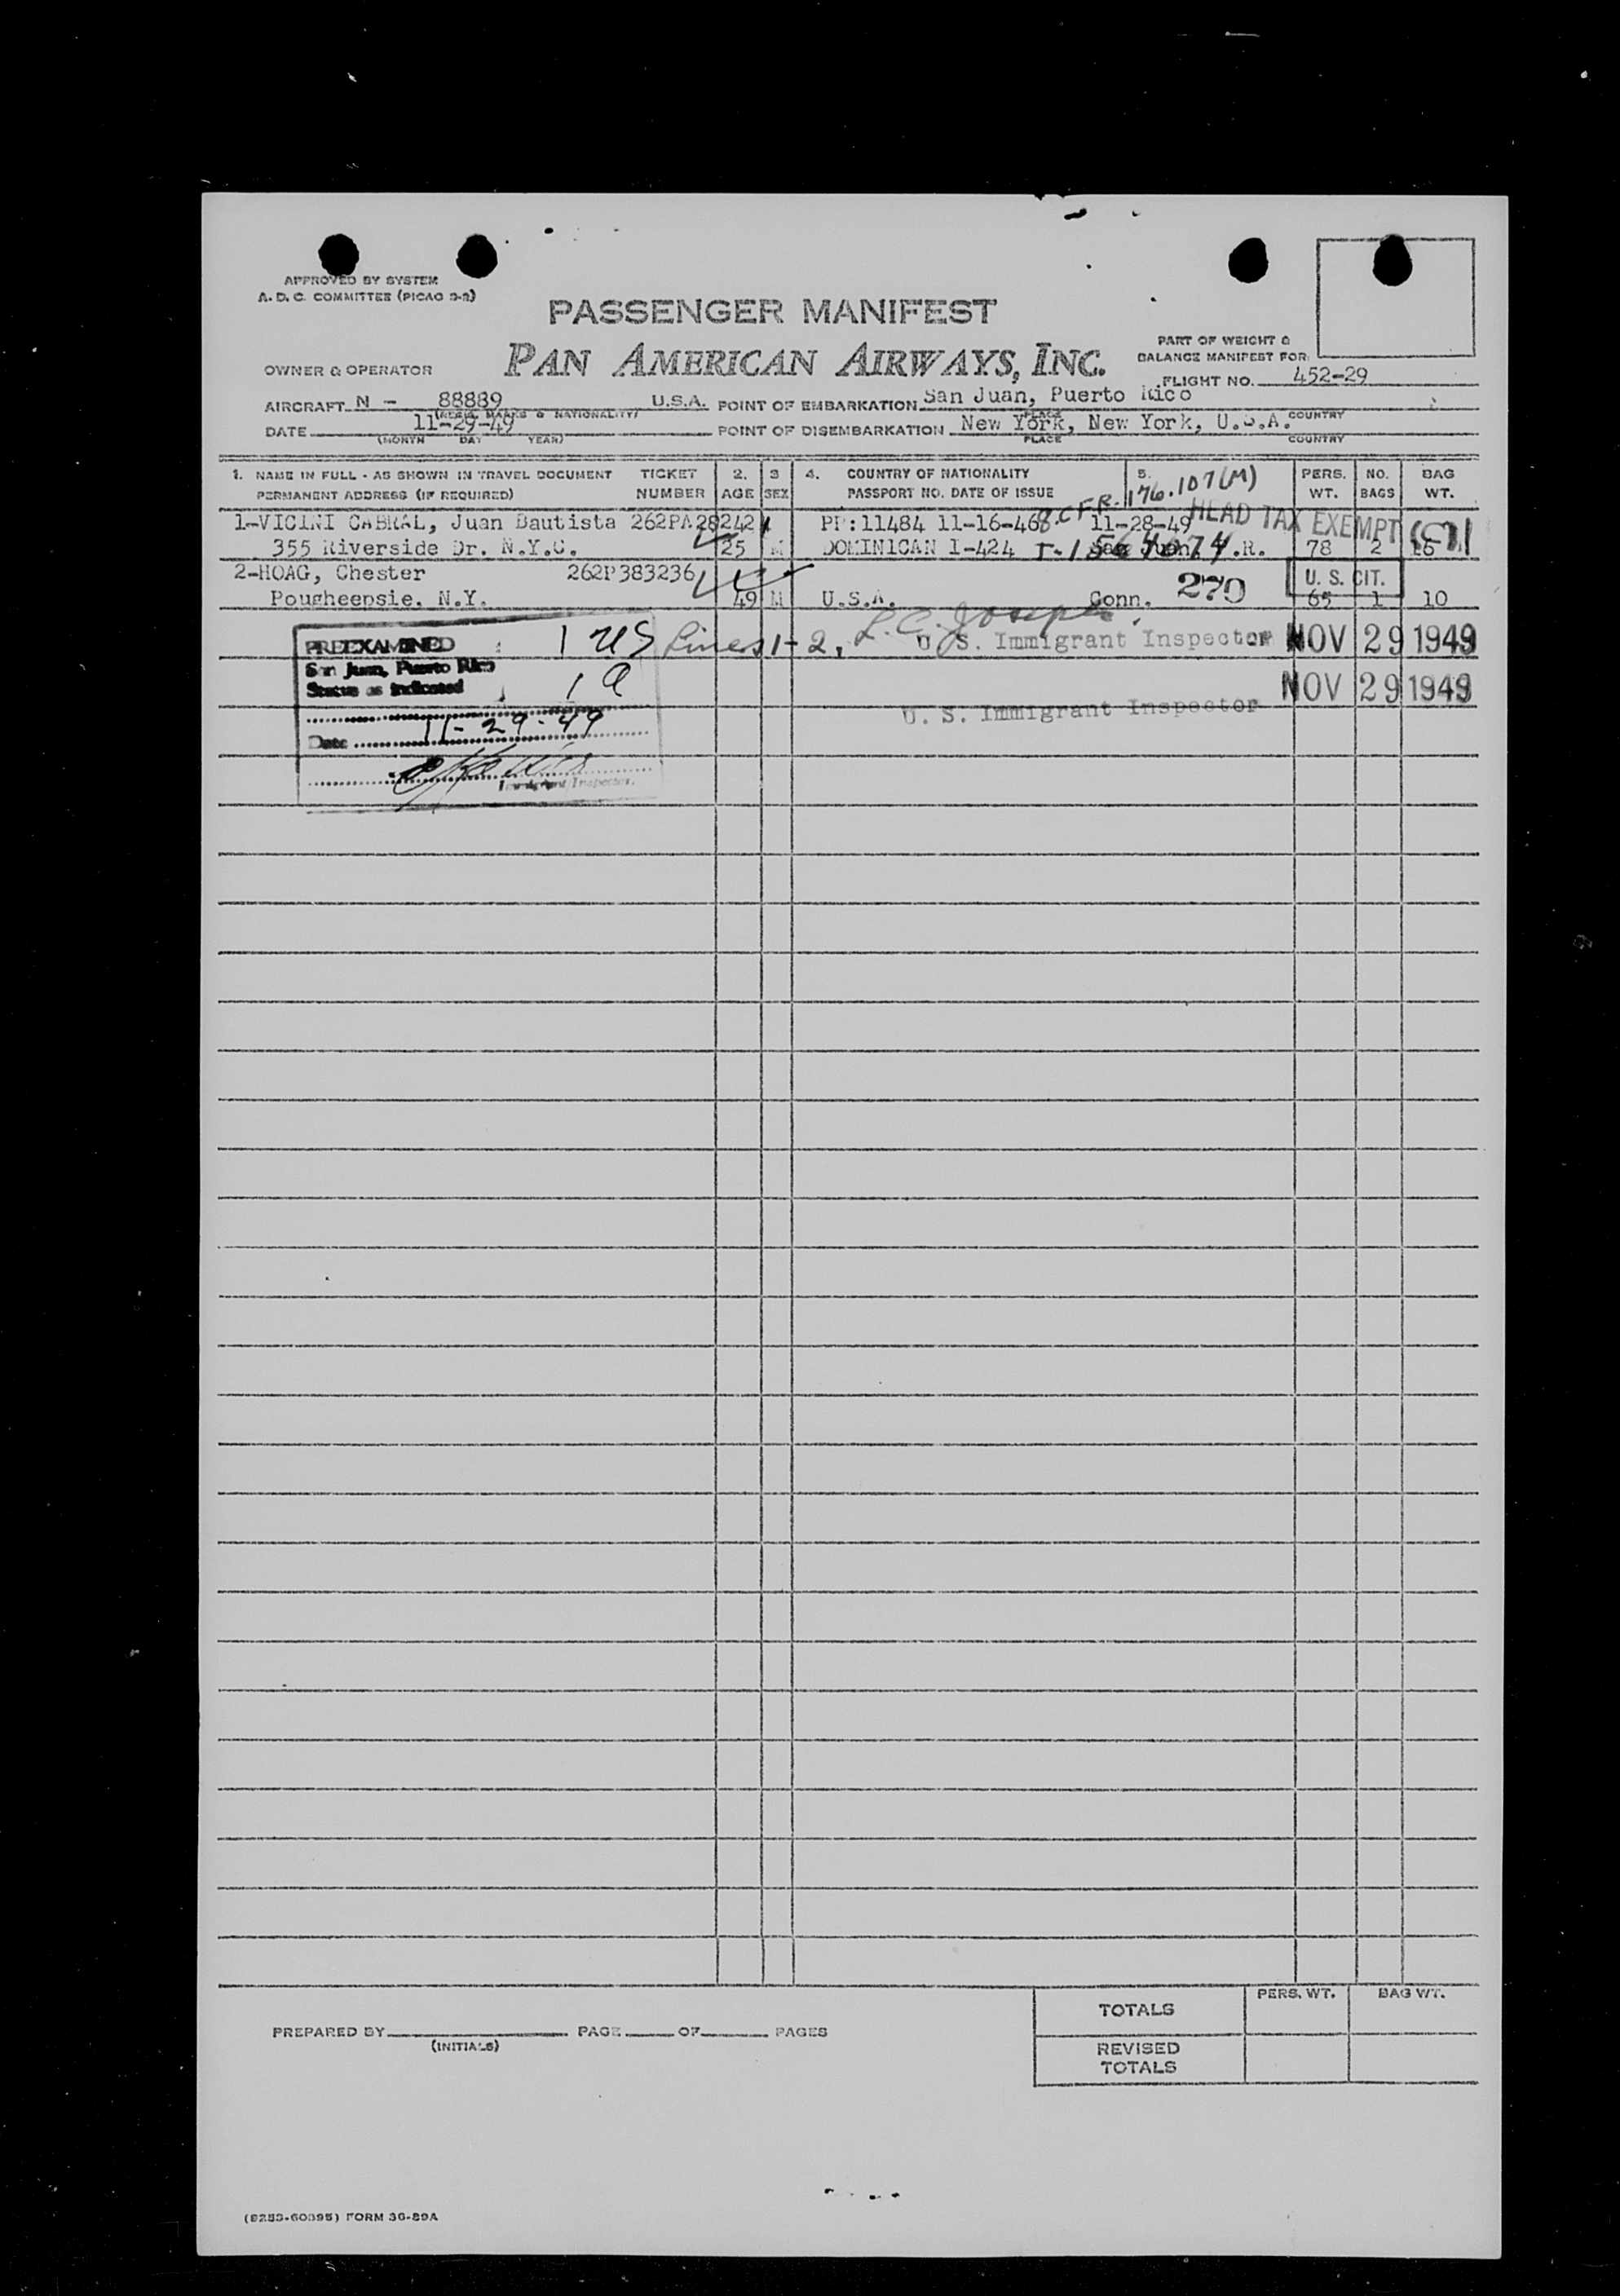 APPROVED BY SYSTEM
A. D. C. COMMITTEE (PICAO 9-2)
PASSENGER MANIFEST
PAN AMERICAN AIRWAYS, INC.
PART OF WEIGHT &
BALANCE MANIFEST FOR
OWNER & OPERATOR
FLIGHT NO. 452-29
AIRCRAFT N - 88889 U.S.A. POINT OF EMBARKATION San Juan, Puerto Rico
(REGIS. MARKS & NATIONALITY) PLACE COUNTRY
DATE 11-29-49 POINT OF DISEMBARKATION New York, New York, U.S.A.
(MONTH DAY YEAR) PLACE COUNTRY
1. NAME IN FULL - AS SHOWN IN TRAVEL DOCUMENT TICKET 2. 3 4. COUNTRY OF NATIONALITY 5. PERS. NO. BAG
PERMANENT ADDRESS (IF REQUIRED) NUMBER AGE SEX PASSPORT NO. DATE OF ISSUE WT. BAGS WT.
8.C.F.R. 176.107(M)
HEAD TAX EXEMPT
1-VICINI CABRAL, Juan Bautista 262PA28242 PP:11484 11-16-46 11-28-49
355 Riverside Dr. N.Y.C. 25 M DOMINICAN I-424 San Juan, P.R. 78 2
2-HOAG, Chester 262P383236 270 U. S. CIT.
Pougheepsie, N.Y. 49 M U.S.A. Conn. 65 1 10
PREEXAMINED 1 US Lines 1-2, L. C. Joseph
U. S. Immigrant Inspector NOV 29 1949
San Juan, Puerto Rico
Status as indicated 1 a
NOV 29 1949
U. S. Immigrant Inspector
Date 11-29-49
Immigrant Inspector.
TOTALS PERS. WT. BAG WT.
PREPARED BY PAGE OF PAGES
(INITIALS)
REVISED
TOTALS
(8253-60395) FORM 36-89A